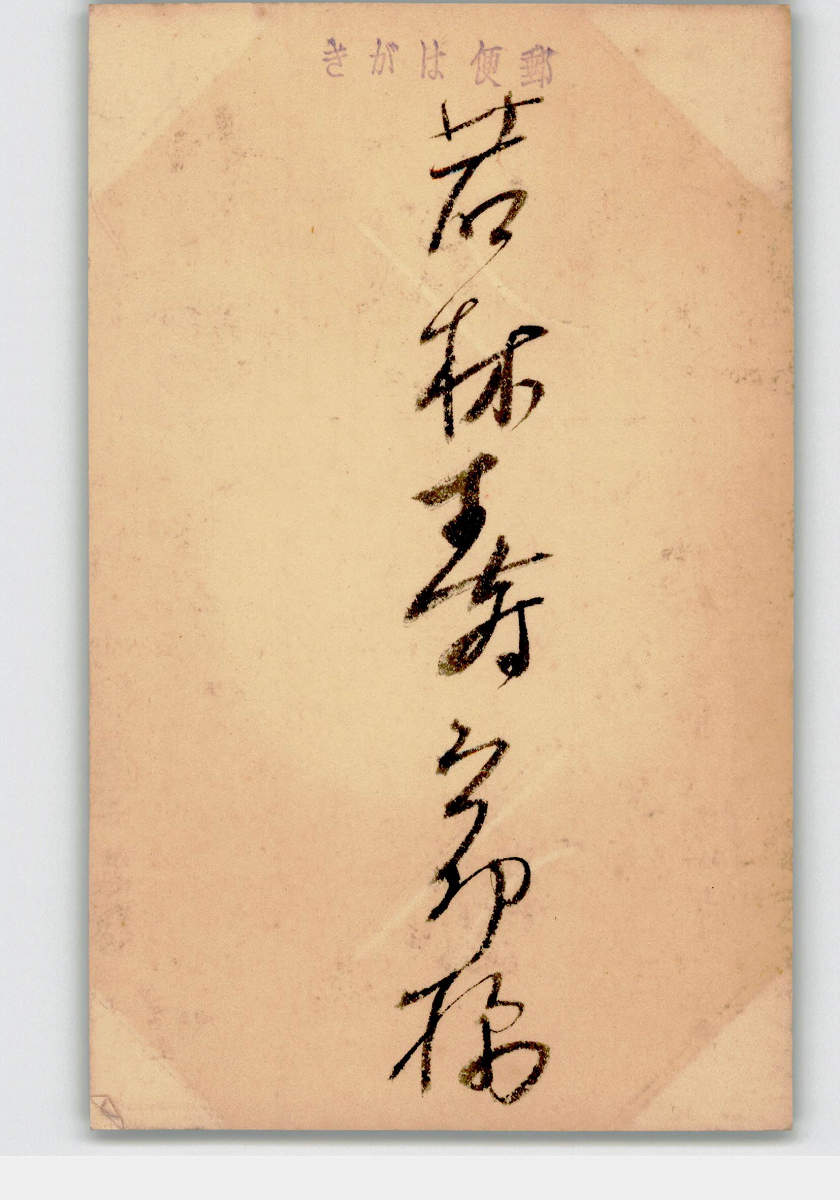 郵便はがき
若林寿郎様